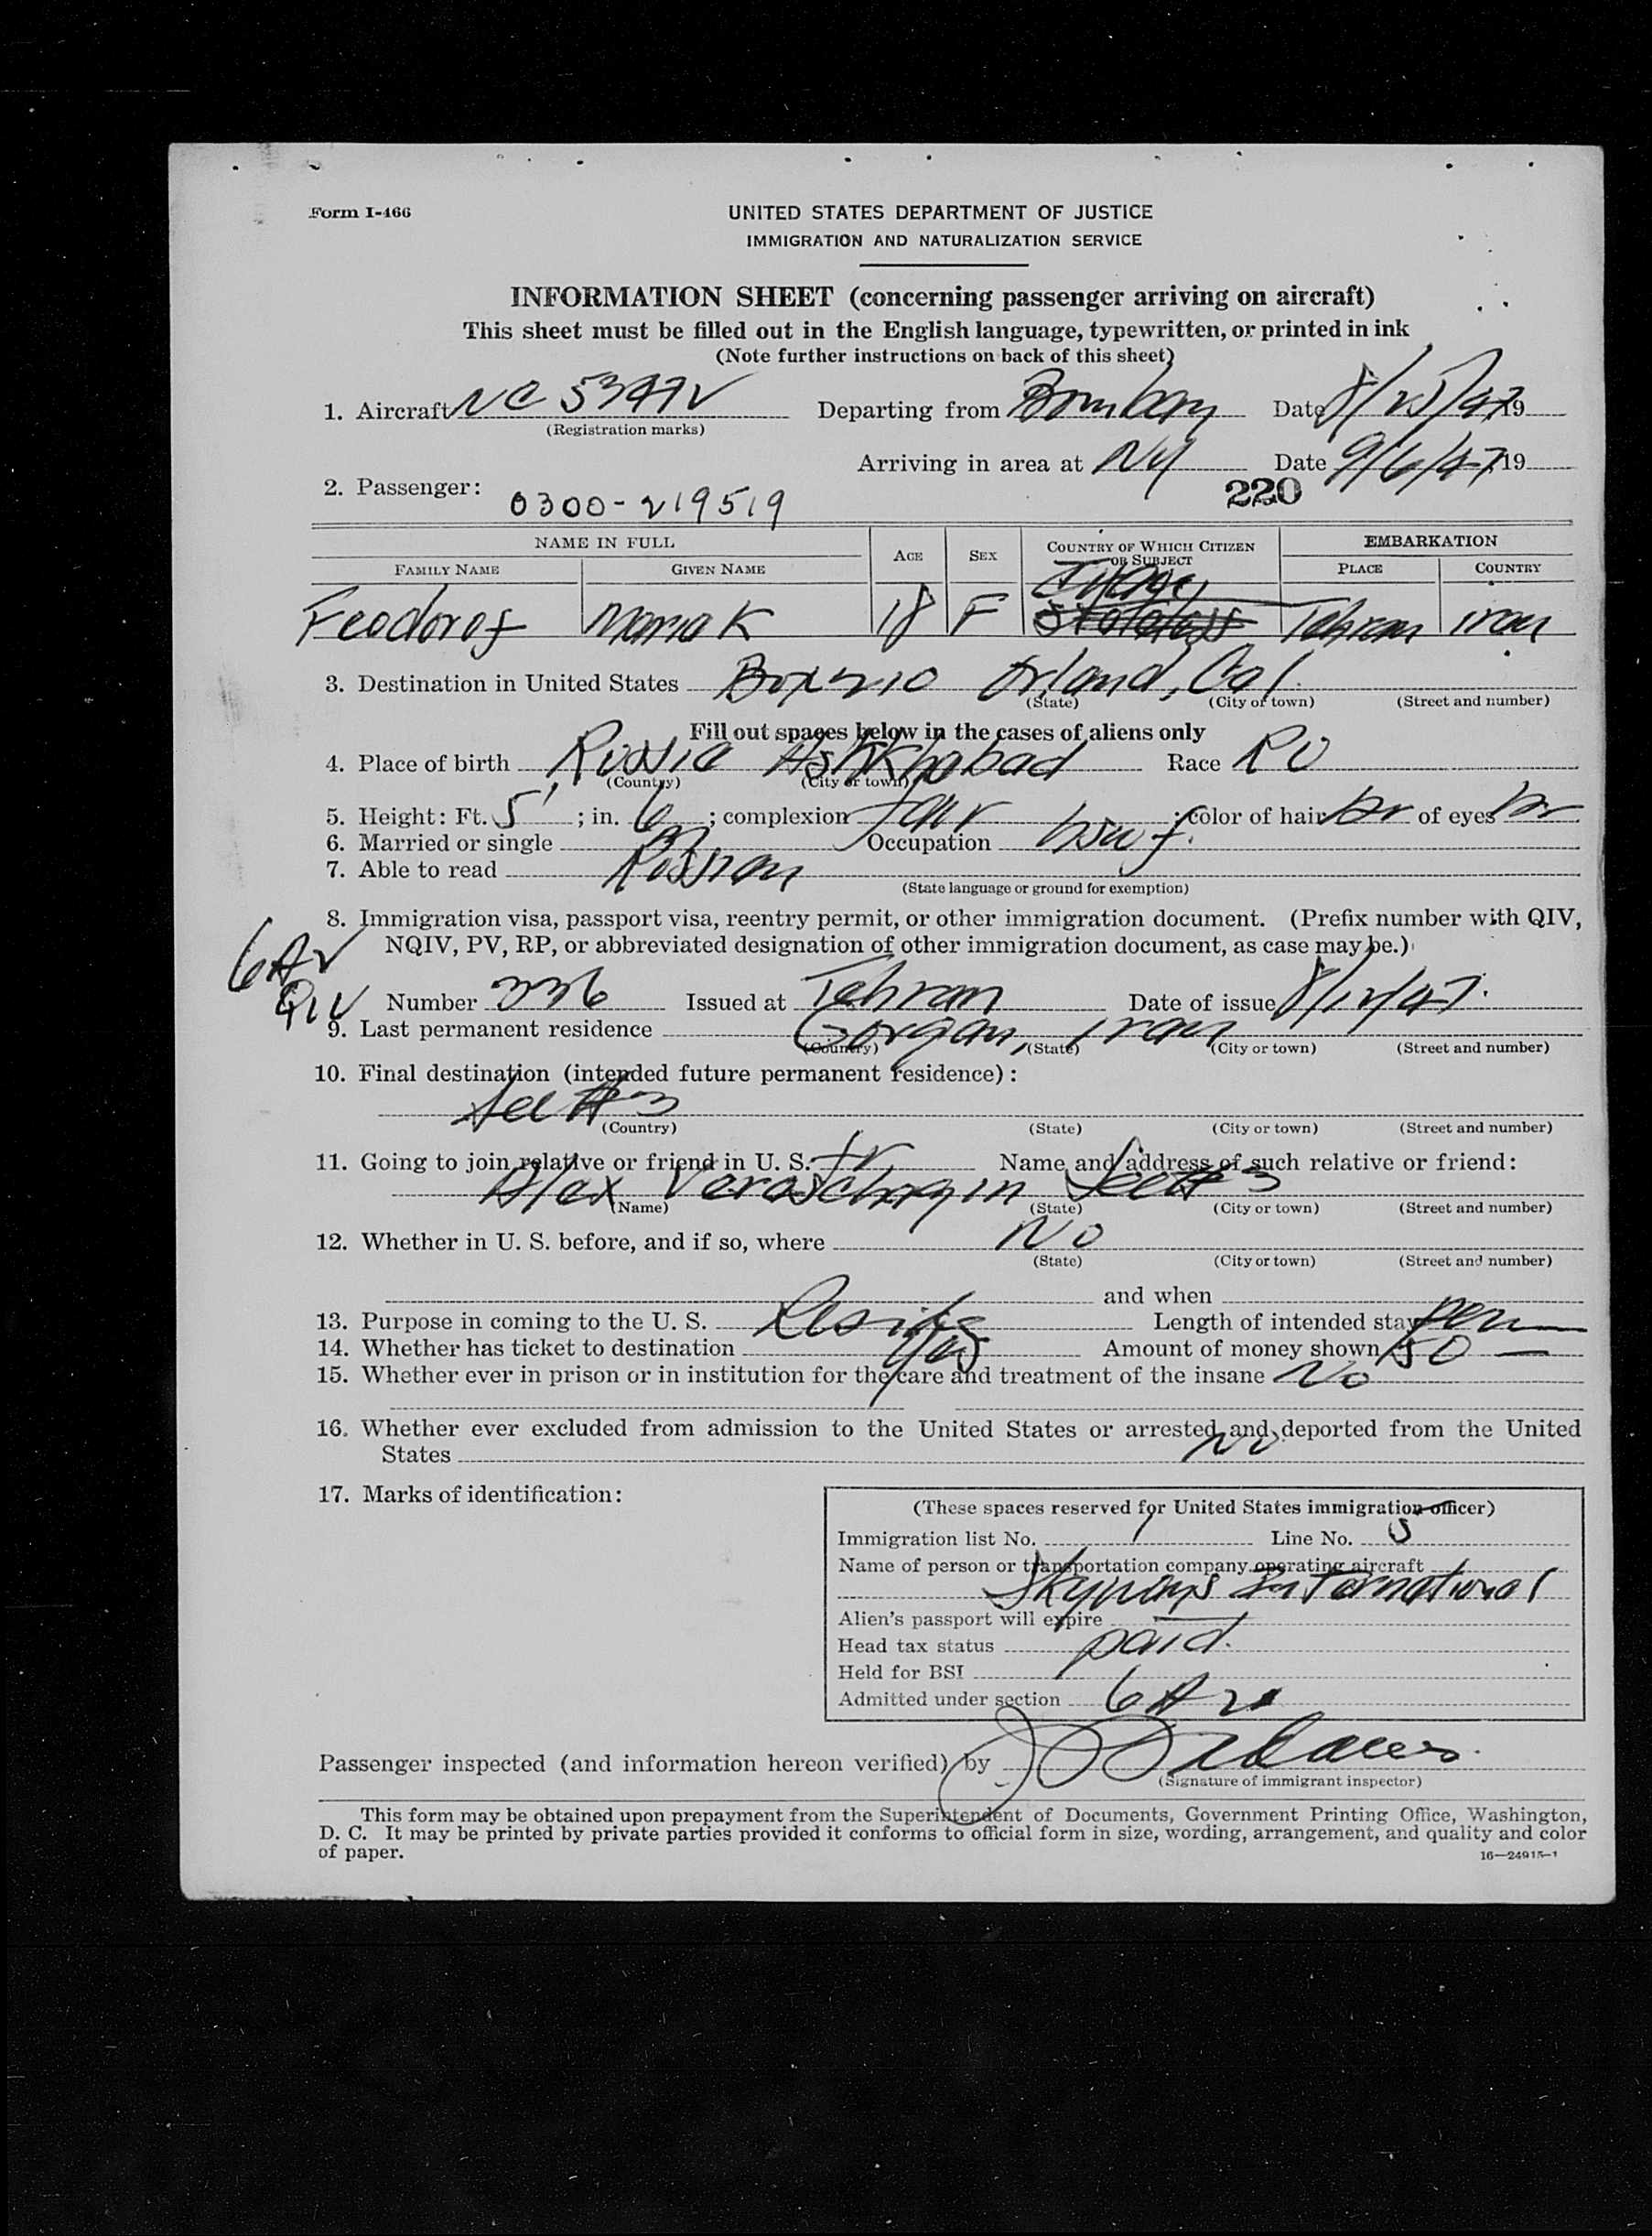 Form I-466
UNITED STATES DEPARTMENT OF JUSTICE
IMMIGRATION AND NATURALIZATION SERVICE
INFORMATION SHEET (concerning passenger arriving on aircraft)
This sheet must be filled out in the English language, typewritten, or printed in ink
(Note further instructions on back of this sheet)
1. Aircraft NC Departing from Bombay Date 8/25/47 19
(Registration marks)
Arriving in area at NY Date 9/6/47 19
2. Passenger: 0300-219519 220
NAME IN FULL AGE SEX COUNTRY OF WHICH CITIZEN OR SUBJECT EMBARKATION
FAMILY NAME GIVEN NAME PLACE COUNTRY
Feodorof Maria K 18 F Stateless Tehran Iran
3. Destination in United States Box 210 Orland, Cal.
(State) (City or town) (Street and number)
Fill out spaces below in the cases of aliens only
4. Place of birth Russia Ashkhabad Race RU
(Country) (City or town)
5. Height: Ft. 5' ; in. 6 ; complexion fair ; color of hair br of eyes br
6. Married or single m Occupation hswf.
7. Able to read Russian
(State language or ground for exemption)
8. Immigration visa, passport visa, reentry permit, or other immigration document. (Prefix number with QIV,
NQIV, PV, RP, or abbreviated designation of other immigration document, as case may be.)
6A2
QIV Number 336 Issued at Tehran Date of issue 8/12/47.
9. Last permanent residence Gorgan, Iran
(Country) (State) (City or town) (Street and number)
10. Final destination (intended future permanent residence):
See #3
(Country) (State) (City or town) (Street and number)
11. Going to join relative or friend in U. S. fr Name and address of such relative or friend:
Alex Veraschagin See #3
(Name) (State) (City or town) (Street and number)
12. Whether in U. S. before, and if so, where No
(State) (City or town) (Street and number)
and when
13. Purpose in coming to the U. S. Reside Length of intended stay perm
14. Whether has ticket to destination Yes Amount of money shown 50 —
15. Whether ever in prison or in institution for the care and treatment of the insane No
16. Whether ever excluded from admission to the United States or arrested and deported from the United
States No
17. Marks of identification:
(These spaces reserved for United States immigration officer)
Immigration list No. 1 Line No. 5
Name of person or transportation company operating aircraft
Skyways International
Alien's passport will expire —
Head tax status paid.
Held for BSI
Admitted under section 6A2
Passenger inspected (and information hereon verified) by
(Signature of immigrant inspector)
This form may be obtained upon prepayment from the Superintendent of Documents, Government Printing Office, Washington,
D. C. It may be printed by private parties provided it conforms to official form in size, wording, arrangement, and quality and color
of paper.
16—24915-1